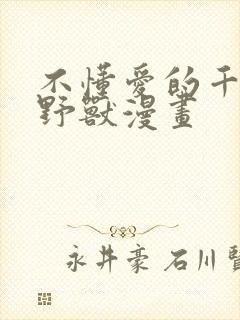 不懂愛的千
野獸漫畫
永井豪 石川賢